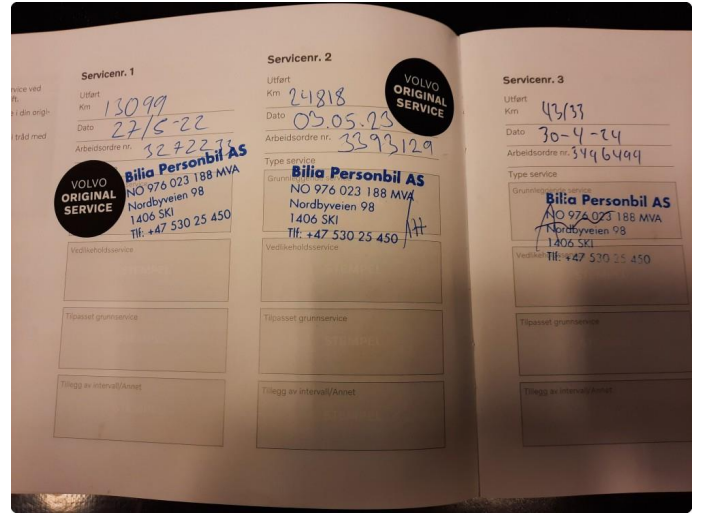 Servicenr. 1
Utført
Km 13099
Dato 27/5-22
Arbeidsordre nr. 3272233
VOLVO
ORIGINAL
SERVICE
Bilia Personbil AS
NO 976 023 188 MVA
Nordbyveien 98
1406 SKI
Tlf: +47 530 25 450
Vedlikeholdsservice
Tilpasset grunnservice
Tillegg av intervall/Annet
Servicenr. 2
Utført
Km 24818
Dato 03.05.23
Arbeidsordre nr. 3393129
VOLVO
ORIGINAL
SERVICE
Type service
Bilia Personbil AS
NO 976 023 188 MVA
Nordbyveien 98
1406 SKI
Tlf: +47 530 25 450
Vedlikeholdsservice
Tilpasset grunnservice
Tillegg av intervall/Annet
Servicenr. 3
Utført
Km 43133
Dato 30-4-24
Arbeidsordre nr. 3496499
Type service
Grunnleggende service
Bilia Personbil AS
NO 976 023 188 MVA
Nordbyveien 98
1406 SKI
Tlf: +47 530 25 450
Tilpasset grunnservice
Tillegg av intervall/Annet